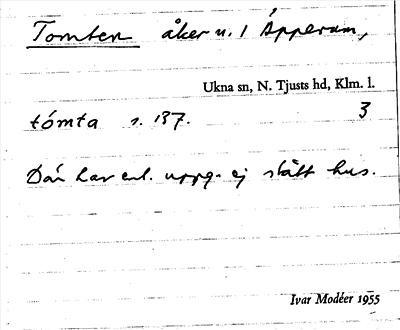 Tomten åker u. 1 Åpperum,
Ukna sn, N. Tjusts hd, Klm. l.
tómta s. 137. 3
Där har enl. uppg. ej stått hus.
Ivar Modéer 1955